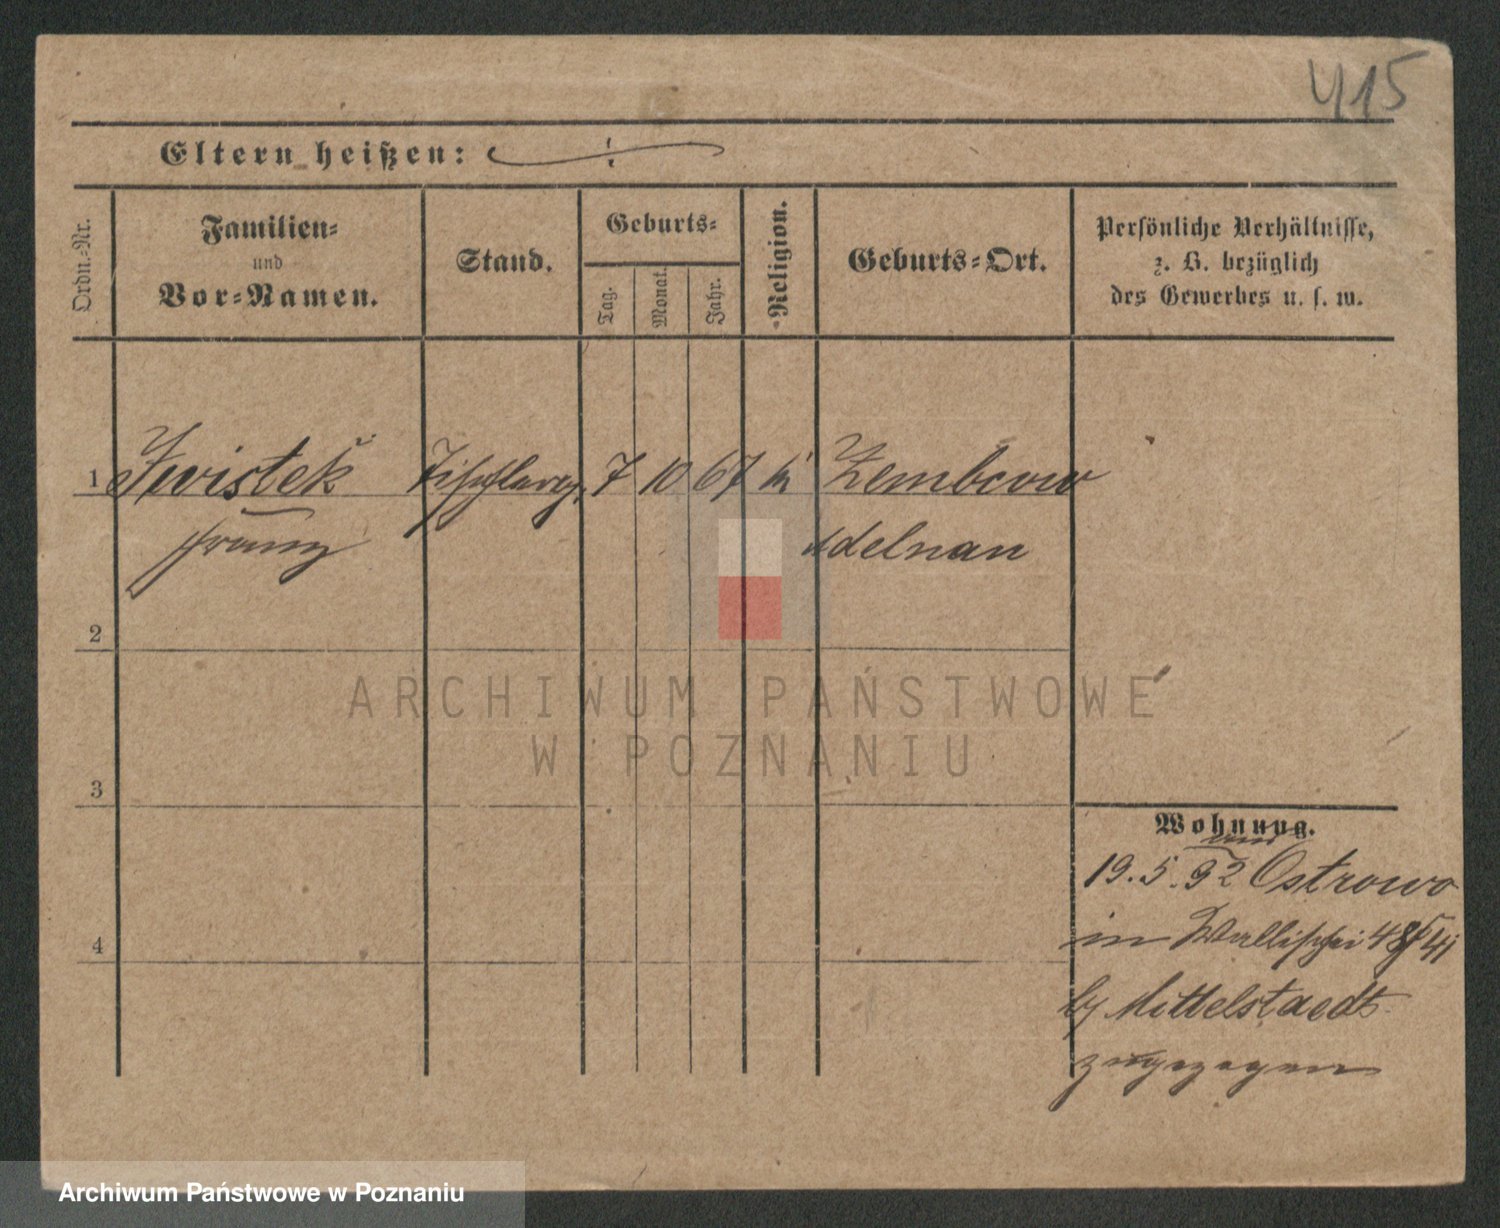 415
Eltern heißen:
Ordn.-Nr.
Familien-
und
Vor-Namen.
Stand.
Geburts-
Tag.
Monat.
Jahr.
Religion.
Geburts-Ort.
Persönliche Verhältnisse,
z. B. bezüglich
des Gewerbes u. s. w.
1 7 10 67 k Zembcow
Franz Adelnau
2
3
4
ARCHIWUM PAŃSTWOWE
W POZNANIU
Wohnung.
von
19.5.92 Ostrowo
in Wallischei
by Mittelstaedt
zugezogen
Archiwum Państwowe w Poznaniu